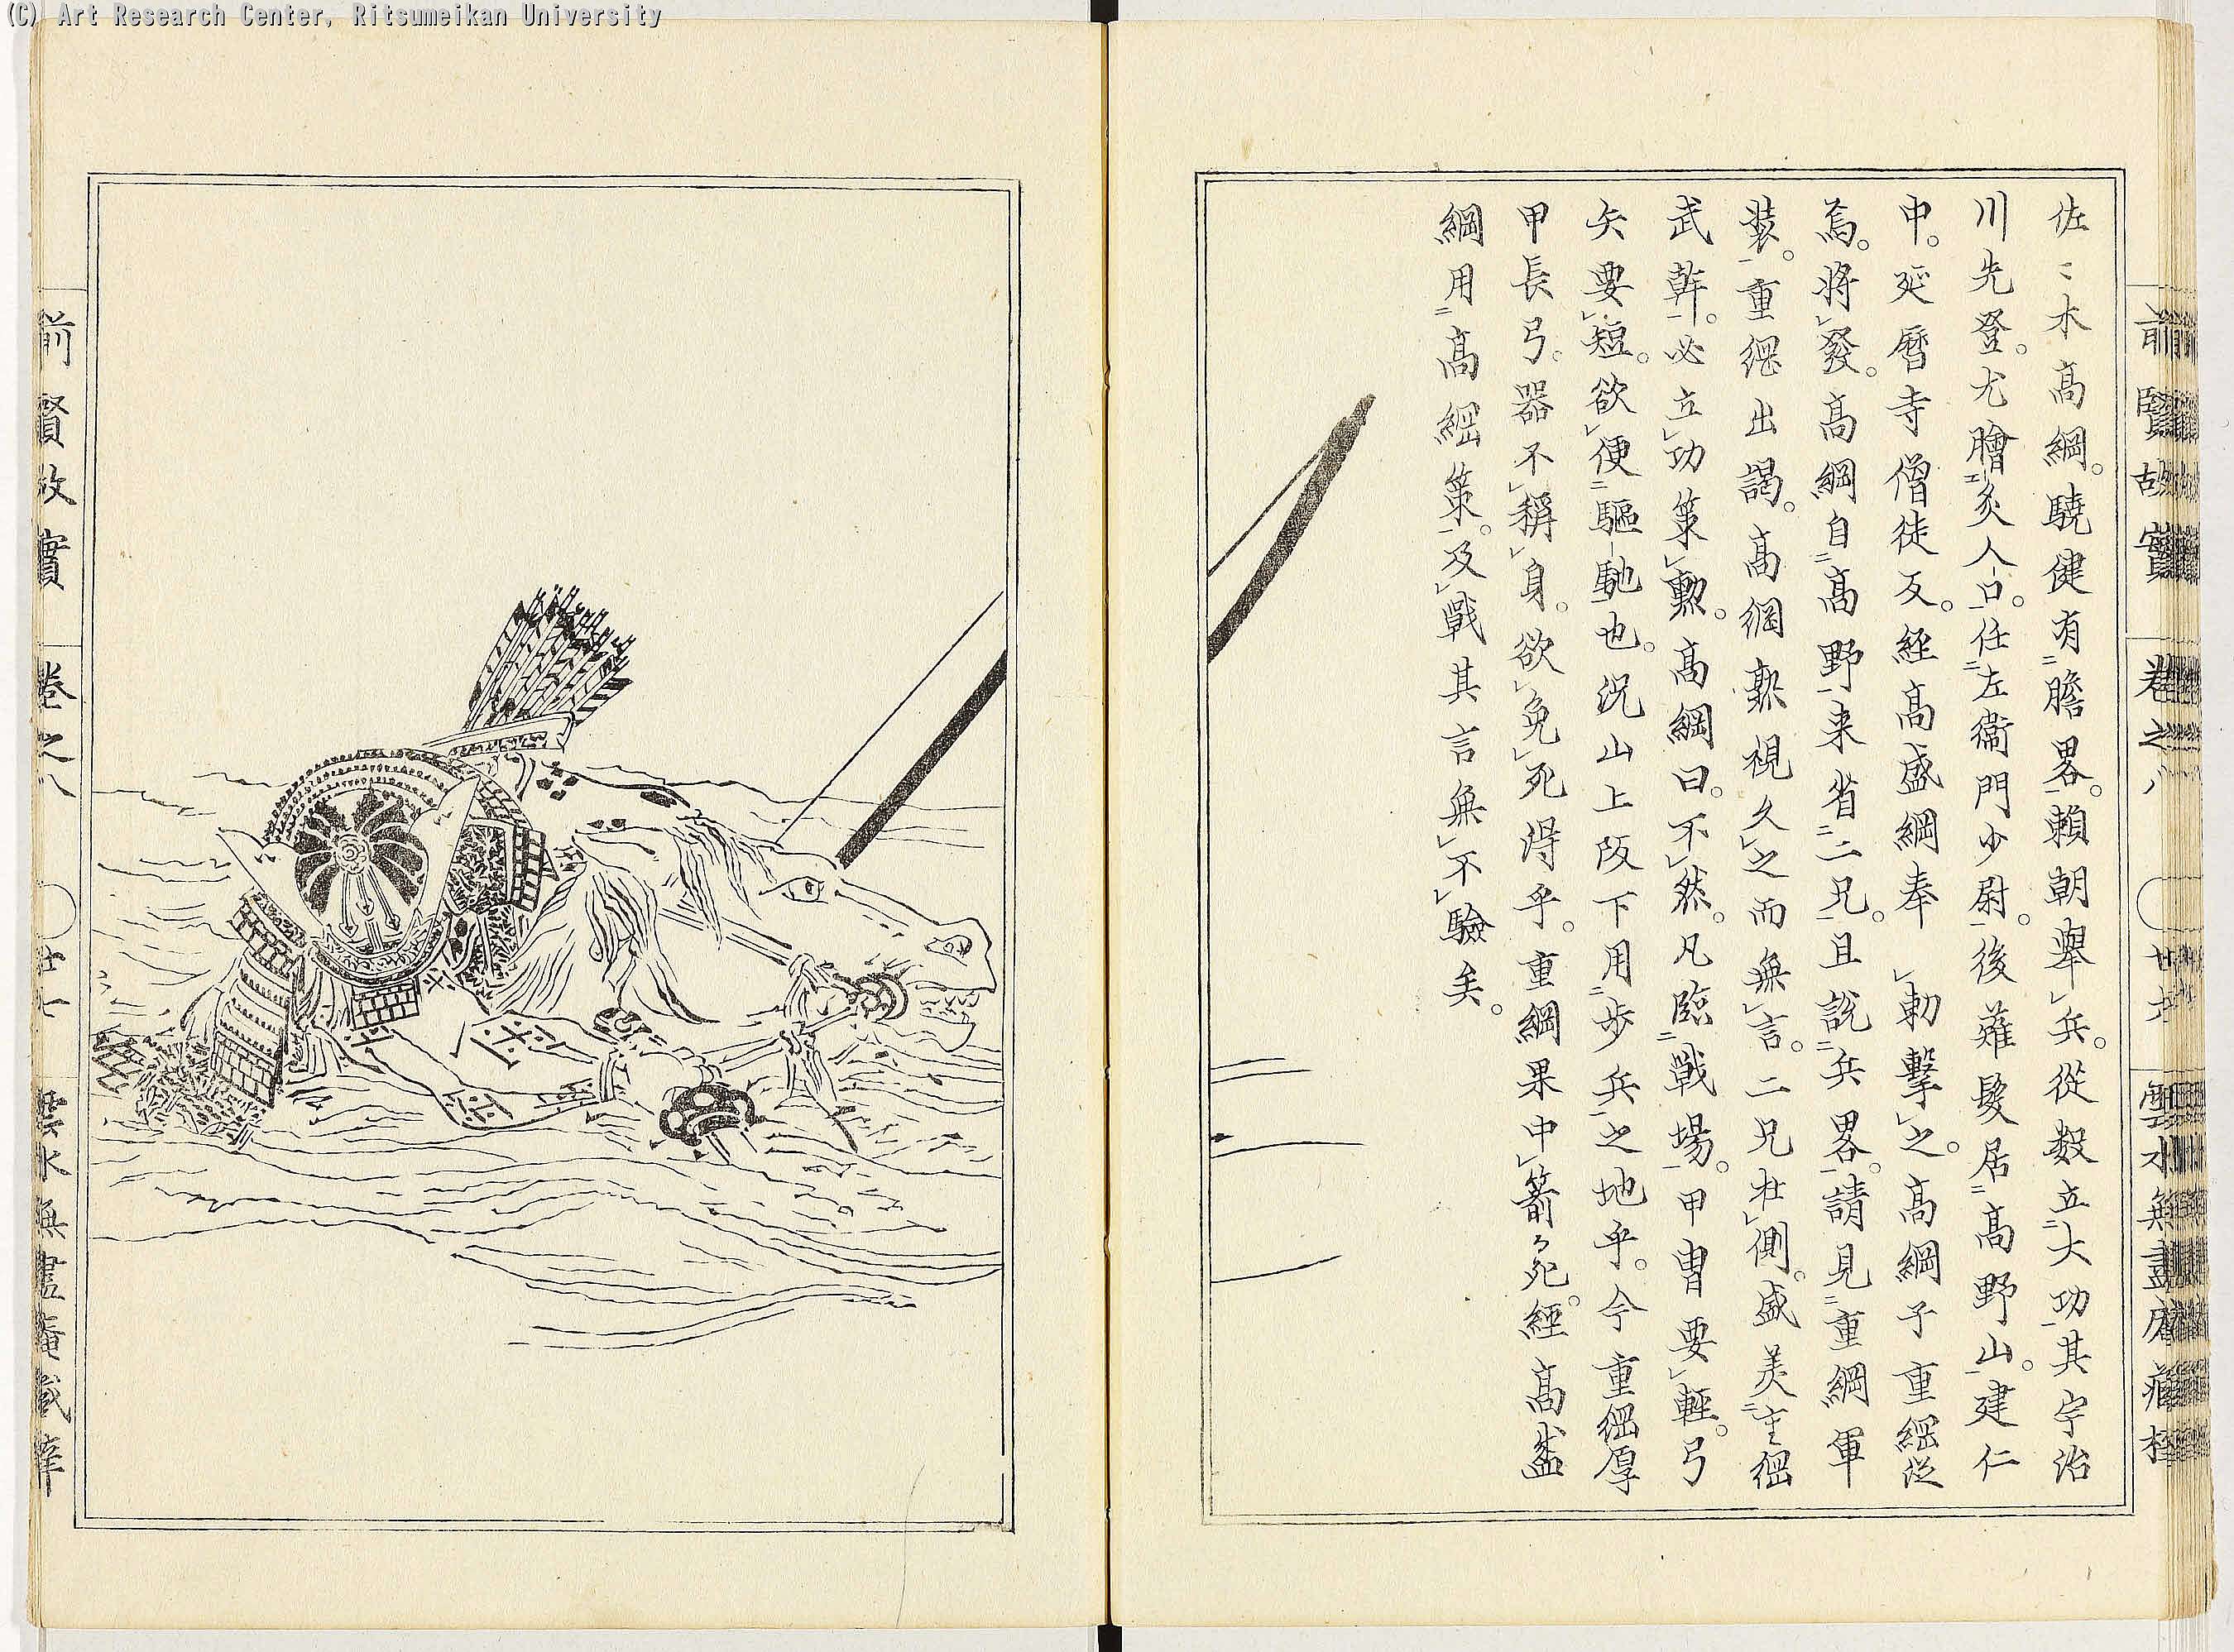 (C) Art Research Center, Ritsumeikan University
前賢故實 卷之八 廿六 雲水無盡庵藏梓
佐〻木髙綱。驍健有膽畧。頼朝舉兵。從數立大功其宇治
川先登。尤膾炙人口。任左衞門少尉。後薙髮居髙野山。建仁
中。延暦寺僧徒反。經髙盛綱奉 勅撃之。髙綱子重綱從
焉。將發。髙綱自髙野来省二兄。且說兵畧。請見重綱軍
装。重綱出謁。髙綱熟視久之而無言。二兄在側。盛美重綱
武幹。必立功策勲。髙綱曰。不然。凡臨戰場。甲冑要輕。弓
矢要短。欲便驅馳也。况山上阪下用歩兵之地乎。今重綱厚
甲長弓。器不稱身。欲免死得乎。重綱果中箭而死。經髙盛
綱用髙綱策。及戰其言無不驗矣。
前賢故實 卷之八 廿七 雲水無盡庵藏梓